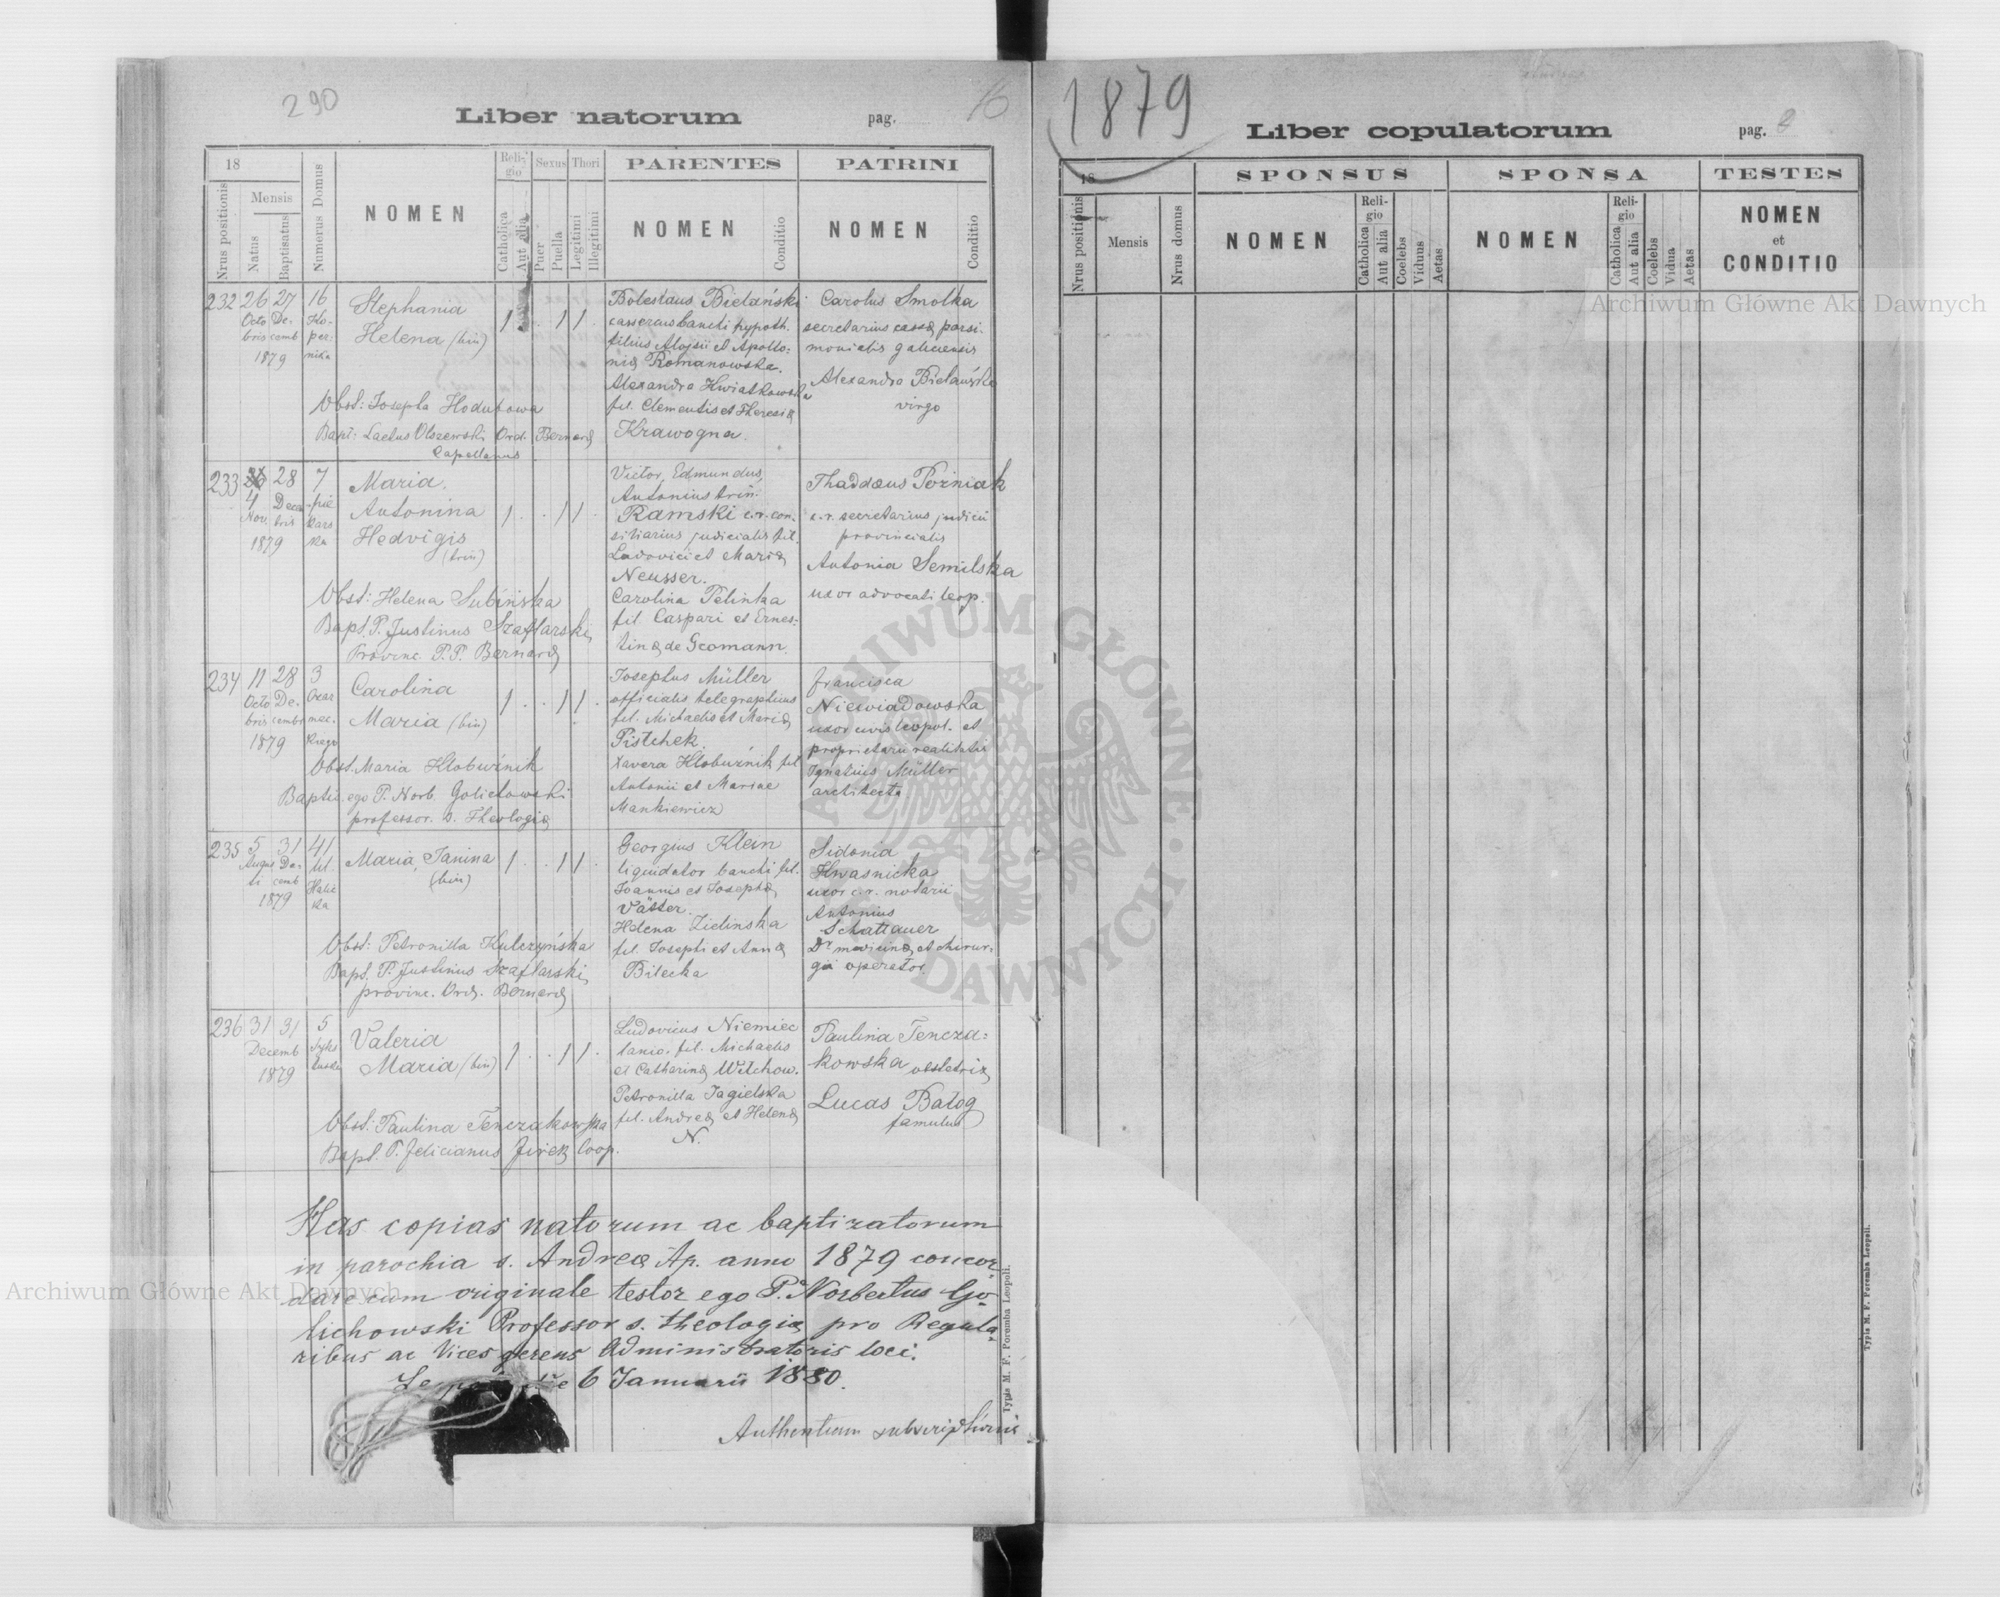 290
Liber natorum
pag. 16
18
Mensis
Nrus positionis
Natus
Baptisatus
Numerus Domus
NOMEN
Religio
Catholica
Aut alia
Sexus
Puer
Puella
Thori
Legitimi
Illegitimi
PARENTES
NOMEN
Conditio
PATRINI
NOMEN
Conditio
232 26 27 16
Octo De- Ko-
bris cemb per-
1879 nika
Stephania
Helena (bin)
1 . . 1 1 .
Boleslaus Bielański
casserius bancti hypoth.
filius Alojsii et Apollo-
niæ Romanowska.
Alexandra Kwiatkowska
fil. Clementis et Theresiæ
Krawogna.
Carolus Smolka
secretarius cassæ parsi-
monialis galiciensis
Alexandra Bielańska
virgo
Obst: Josepha Hodubowa
Bapt: Laetus Olszewski Ord. Bernard
Capellanus
233 28 7
4 Decem
Nov. bris
1879
Maria
Antonina
Hedvigis
(trin)
1 . . 1 1 .
Victor, Edmundus,
Antonius trin.
Ramski c.r. con-
siliarius judicialis fil.
Ludovici et Mariæ
Neusser.
Carolina Pelinka
fil. Caspari et Ernes-
tinæ de Geomann.
Thaddæus Poźniak
c.r. secretarius judicii
provincialis
Antonia Semilska
uxor advocati leop.
Obst: Helena Lubińska
Bapt. P. Justinus Szaflarski,
Provinc. P.P. Bernard
234 11 28 3
Octo De-
bris cemb
1879
Carolina
Maria (bin)
1 . . 1 1 .
Josephus Müller
officialis telegraphicus
fil. Michaelis et Mariæ
Pistchek.
Xavera Kłobuźnik fil
Antonii et Mariae
Mankiewicz
Francisca
Niewiadowska
uxor civis leopol. et
proprietarii realitatis
Ignatius Müller
architecta
Obst. Maria Kłobuźnik
Baptis. ego P. Norb. Golichowski
professor. s. Theologiæ
235 5 31 41
Augus De-
ti cemb
1879
Halic
ka
Maria, Janina
(bin)
1 . . 1 1 .
Georgius Klein
liquidator bancti fil.
Joannis et Josephæ
Vätter.
Helena Zielinska
fil. Josephi et Annæ
Bilecka
Sidonia
Kwasnicka
uxor c.r. notarii
Antonius
Schattauer
Dr medicinæ et chirur-
giæ operator.
Obst: Petronilla Kulczyńska
Bapt. P. Justinus Szaflarski,
provinc. Ord. Bernard
236 31 31 5
Decemb
1879
Valeria
Maria (bin)
1 . . 1 1 .
Ludovicus Niemiec
lanio. fil. Michaelis
et Catharinæ Welchow.
Petronilla Jagielska
fil. Andreæ et Helenæ
N.
Paulina Tencza-
kowska obstetrix
Lucas Balog
famulus
Obst: Paulina Tenczakowska
Bapt. P. Felicianus Firek coop.
Has copias natorum ac baptizatorum
in parochia s. Andreæ Ap. anno 1879 concor
dare cum originale testor ego P. Norbertus Go-
lichowski Professor s. theologiæ pro Regula-
ribus ac Vices gerens Administratoris loci.
die 6 Januarii 1880.
Authenticam subscriptionis
Typis M. F. Poremba Leopoli.
1879
Liber copulatorum
pag.
18
Nrus positionis
Mensis
Nrus domus
SPONSUS
NOMEN
Religio
Catholica
Aut alia
Coelebs
Viduus
Aetas
SPONSA
NOMEN
Religio
Catholica
Aut alia
Coelebs
Vidua
Aetas
TESTES
NOMEN
et
CONDITIO
Typis M. F. Poremba Leopoli.
Archiwum Główne Akt Dawnych
Archiwum Główne Akt Dawnych
ARCHIWUM GŁÓWNE AKT DAWNYCH